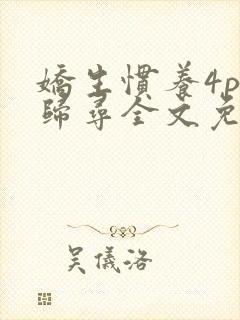 嬌生慣養4p
歸尋全文免
吳儀洛